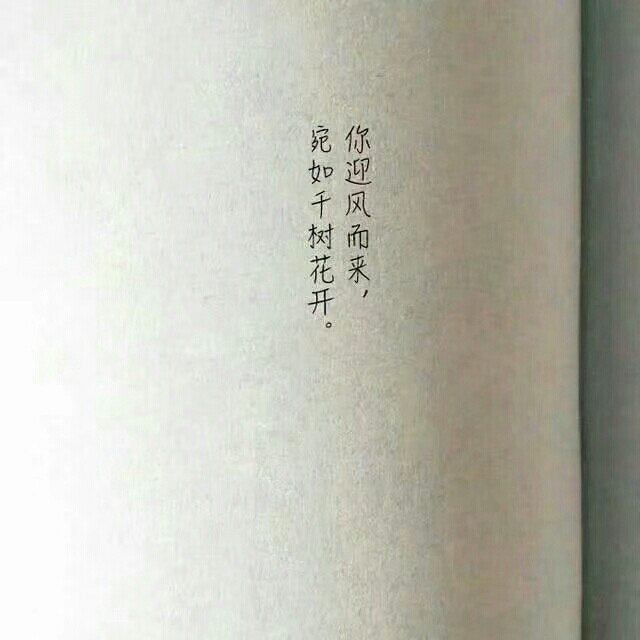 你迎风而来，
宛如千树花开。